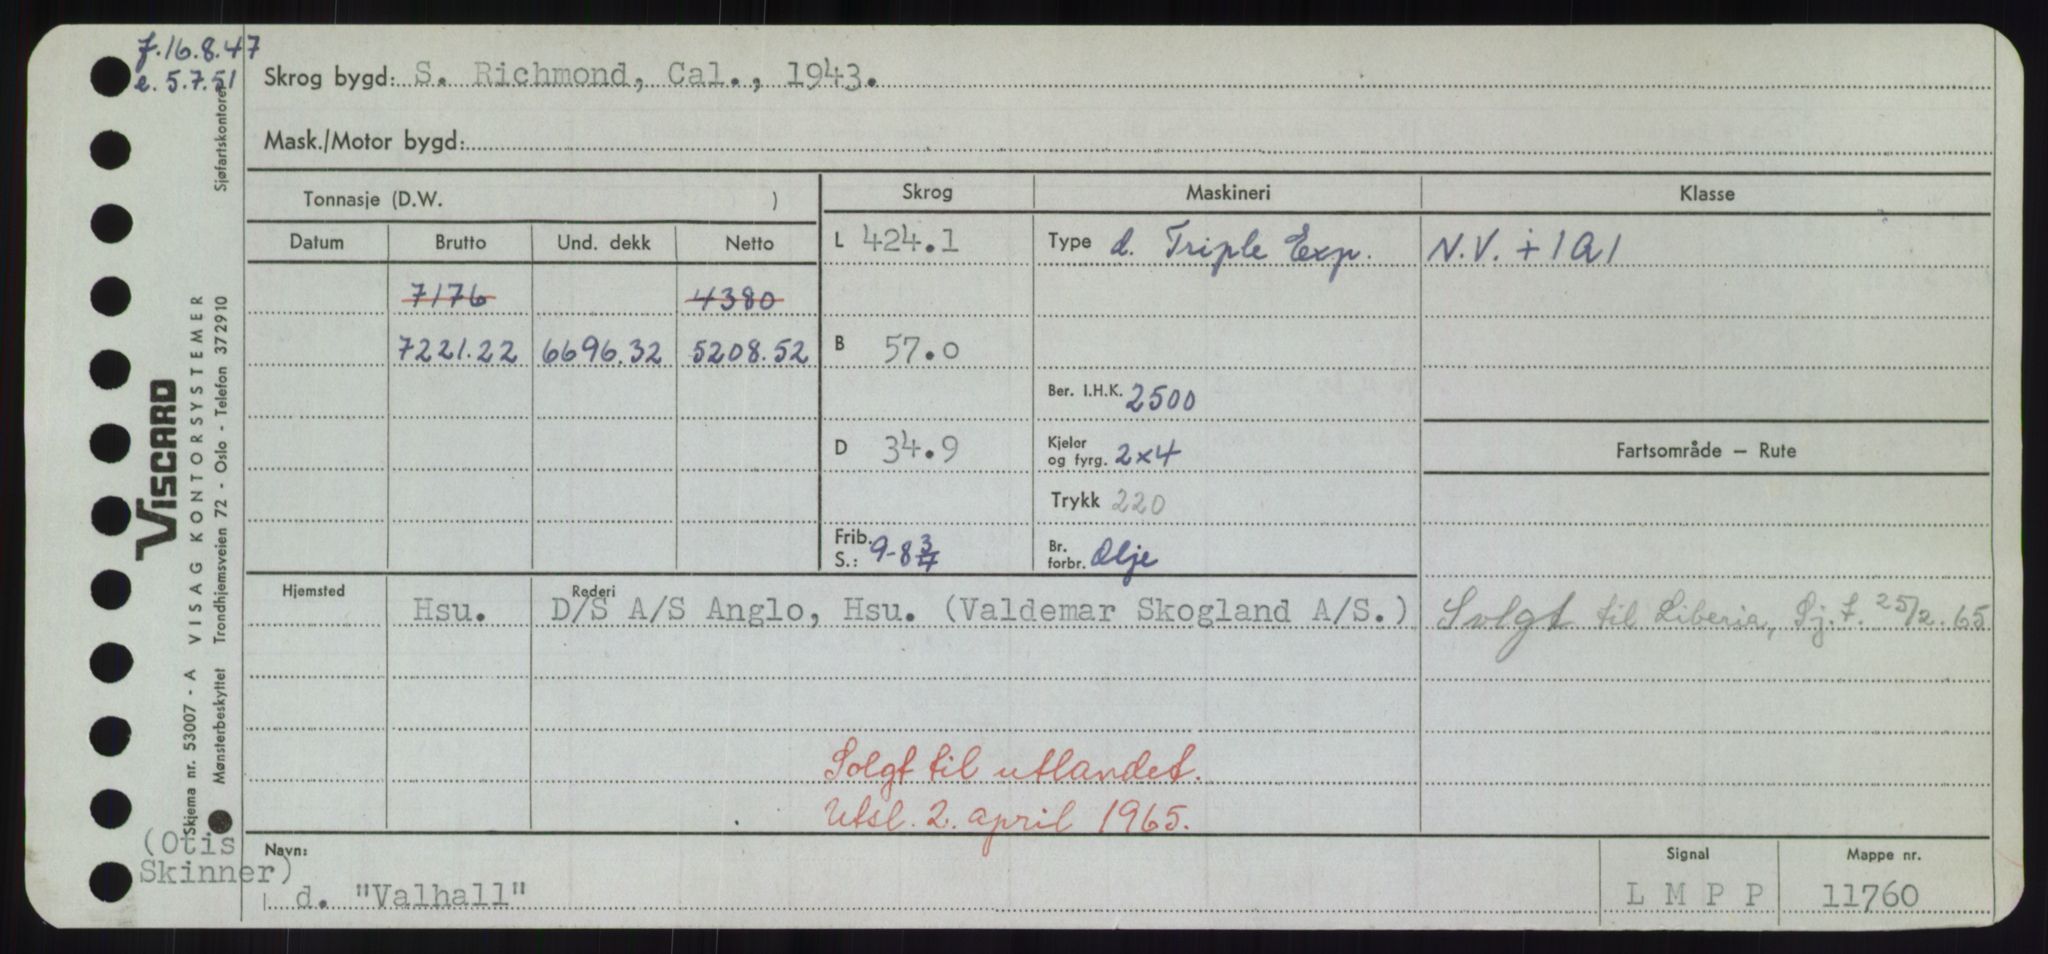 f. 16.8.47
e. 5.7.51
Skrog bygd: S. Richmond, Cal., 1943.
Mask./Motor bygd:
Tonnasje (D.W. )
Skrog
Maskineri
Klasse
Datum
Brutto
Und. dekk
Netto
L 424.1
Type d. Triple Exp.
N.V. + 1A1
7176
4380
7221.22
6696.32
5208.52
B 57.0
Ber. I.H.K. 2500
D 34.9
Kjeler
og fyrg. 2x4
Fartsområde – Rute
Trykk 220
Frib.
S.: 9-8 3/4
Br.
forbr. Olje
Hjemsted
Rederi
Hsu.
D/S A/S Anglo, Hsu. (Valdemar Skogland A/S.)
Solgt til Liberia, Sj.f. 25/2. 65
Solgt til utlandet.
Utsl. 2. april 1965.
(Otis
Skinner)
Navn:
d. "Valhall"
Signal
L M P P
Mappe nr.
11760
VISCARD
Skjema nr. 53007 - A VISAG KONTORSYSTEMER
Mønsterbeskyttet Trondhjemsveien 72 - Oslo - Telefon 372910
Sjøfartskontoret